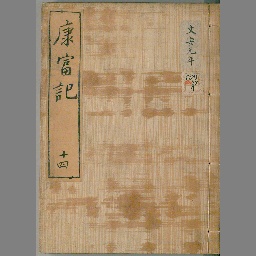 康富記
十四
文安元年